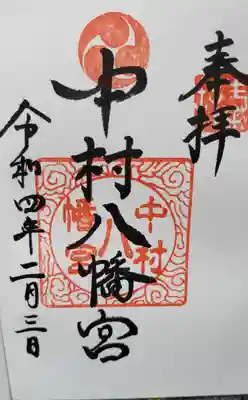 奉拝
中村八幡宮
中村八幡宮
令和四年二月三日